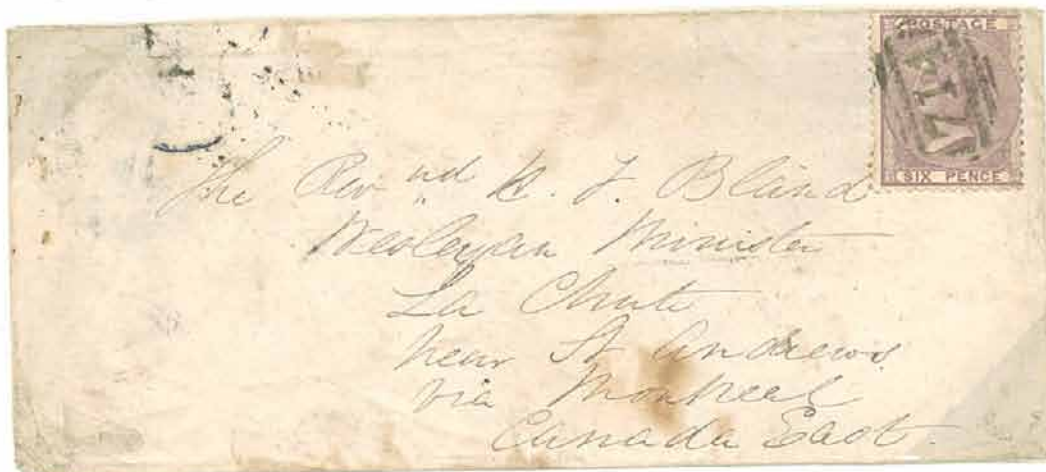 POSTAGE
SIX PENCE
The Revnd H. F. Bland
Wesleyan Minister
La Chute
near St Andrews
via Montreal
Canada East.